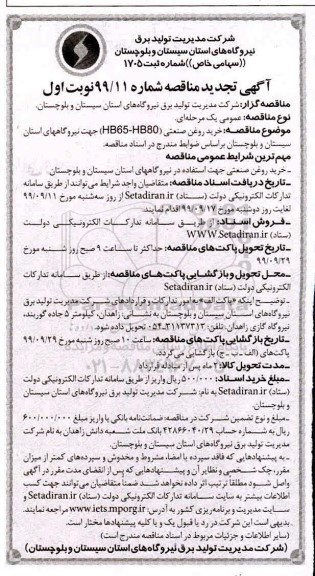 شرکت مدیریت تولید برق
نیروگاه‌های استان سیستان و بلوچستان
((سهامی خاص)) شماره ثبت ۱۷۰۵
آگهی تجدید مناقصه شماره ۹۹/۱۱ نوبت اول
مناقصه گزار: شرکت مدیریت تولید برق نیروگاه‌های استان سیستان و بلوچستان.
نوع مناقصه: عمومی یک مرحله‌ای.
موضوع مناقصه: خرید روغن صنعتی (HB65-HB80) جهت نیروگاههای استان
سیستان و بلوچستان براساس ضوابط مندرج در اسناد مناقصه.
مهم ترین شرایط عمومی مناقصه
- خرید روغن صنعتی جهت استفاده در نیروگاههای استان سیستان و بلوچستان.
- تاریخ دریافت اسناد مناقصه: متقاضیان واجد شرایط می‌توانند از طریق سامانه
تدارکات الکترونیکی دولت (ستاد) Setadiran.ir از روز سه‌شنبه مورخ ۹۹/۰۹/۱۱
لغایت روز دوشنبه مورخ ۹۹/۰۹/۱۷ اقدام نمایند.
- فروش اسناد: از طریق سامانه تدارکات الکترونیکی دولت
(ستاد) WWW.Setadiran.ir
- تاریخ تحویل پاکت‌های مناقصه: حداکثر تا ساعت ۹ صبح روز شنبه مورخ
۹۹/۰۹/۲۹
- محل تحویل و بازگشایی پاکت‌های مناقصه: از طریق سامانه تدارکات
الکترونیکی دولت (ستاد) Setadiran.ir
- توضیح اینکه «پاکت الف» به امور تدارکات و قراردادهای شرکت مدیریت تولید برق
نیروگاه‌های استان سیستان و بلوچستان به نشانی: زاهدان، کیلومتر ۵ جاده گوربند،
نیروگاه گازی زاهدان، تلفن: ۳۱۱۳۷۳۱۳-۰۵۴ تحویل داده شود.
- تاریخ بازگشایی پاکت‌های مناقصه: ساعت ۱۰ صبح روز شنبه مورخ ۹۹/۰۹/۲۹
پاکت‌های (الف - ب - ج) بازگشایی می‌گردد.
- مدت تحویل کالا: ۲ ماه پس از مبادله قرارداد
- مبلغ خرید اسناد: ۵۰۰/۰۰۰ ریال واریز از طریق سامانه تدارکات الکترونیکی دولت
(ستاد) Setadiran.ir به نام: شرکت مدیریت تولید برق نیروگاه‌های استان سیستان
و بلوچستان.
- مبلغ و نوع تضمین شرکت در مناقصه: ضمانت‌نامه بانکی یا واریز مبلغ ۶۰۰/۰۰۰/۰۰۰
ریال به شماره حساب ۴۲۸۶۶۰۴۰/۲۹ بانک ملت شعبه دانش زاهدان به نام شرکت
مدیریت تولید برق نیروگاه‌های استان سیستان و بلوچستان.
- به پیشنهادهایی که فاقد سپرده یا امضاء مشروط و مخدوش و سپرده‌های کمتر از میزان
مقرر، چک شخصی و نظایر آن و پیشنهادهایی که پس از انقضای مدت مقرر در آگهی
واصل شود مطلقا ترتیب اثر داده نخواهد شد. ضمنا متقاضیان می‌توانند جهت کسب
اطلاعات بیشتر به سایت سامانه تدارکات الکترونیکی دولت (ستاد) Setadiran.ir و
سایت مدیریت و برنامه‌ریزی کشور به آدرس: www.iets.mporg.ir مراجعه نمایند.
- بدیهی است این شرکت در رد یا قبول یک و یا کلیه پیشنهادها مختار است.
(سایر اطلاعات و جزئیات مربوط در اسناد مناقصه مندرج است)
(شرکت مدیریت تولید برق نیروگاه‌های استان سیستان و بلوچستان)